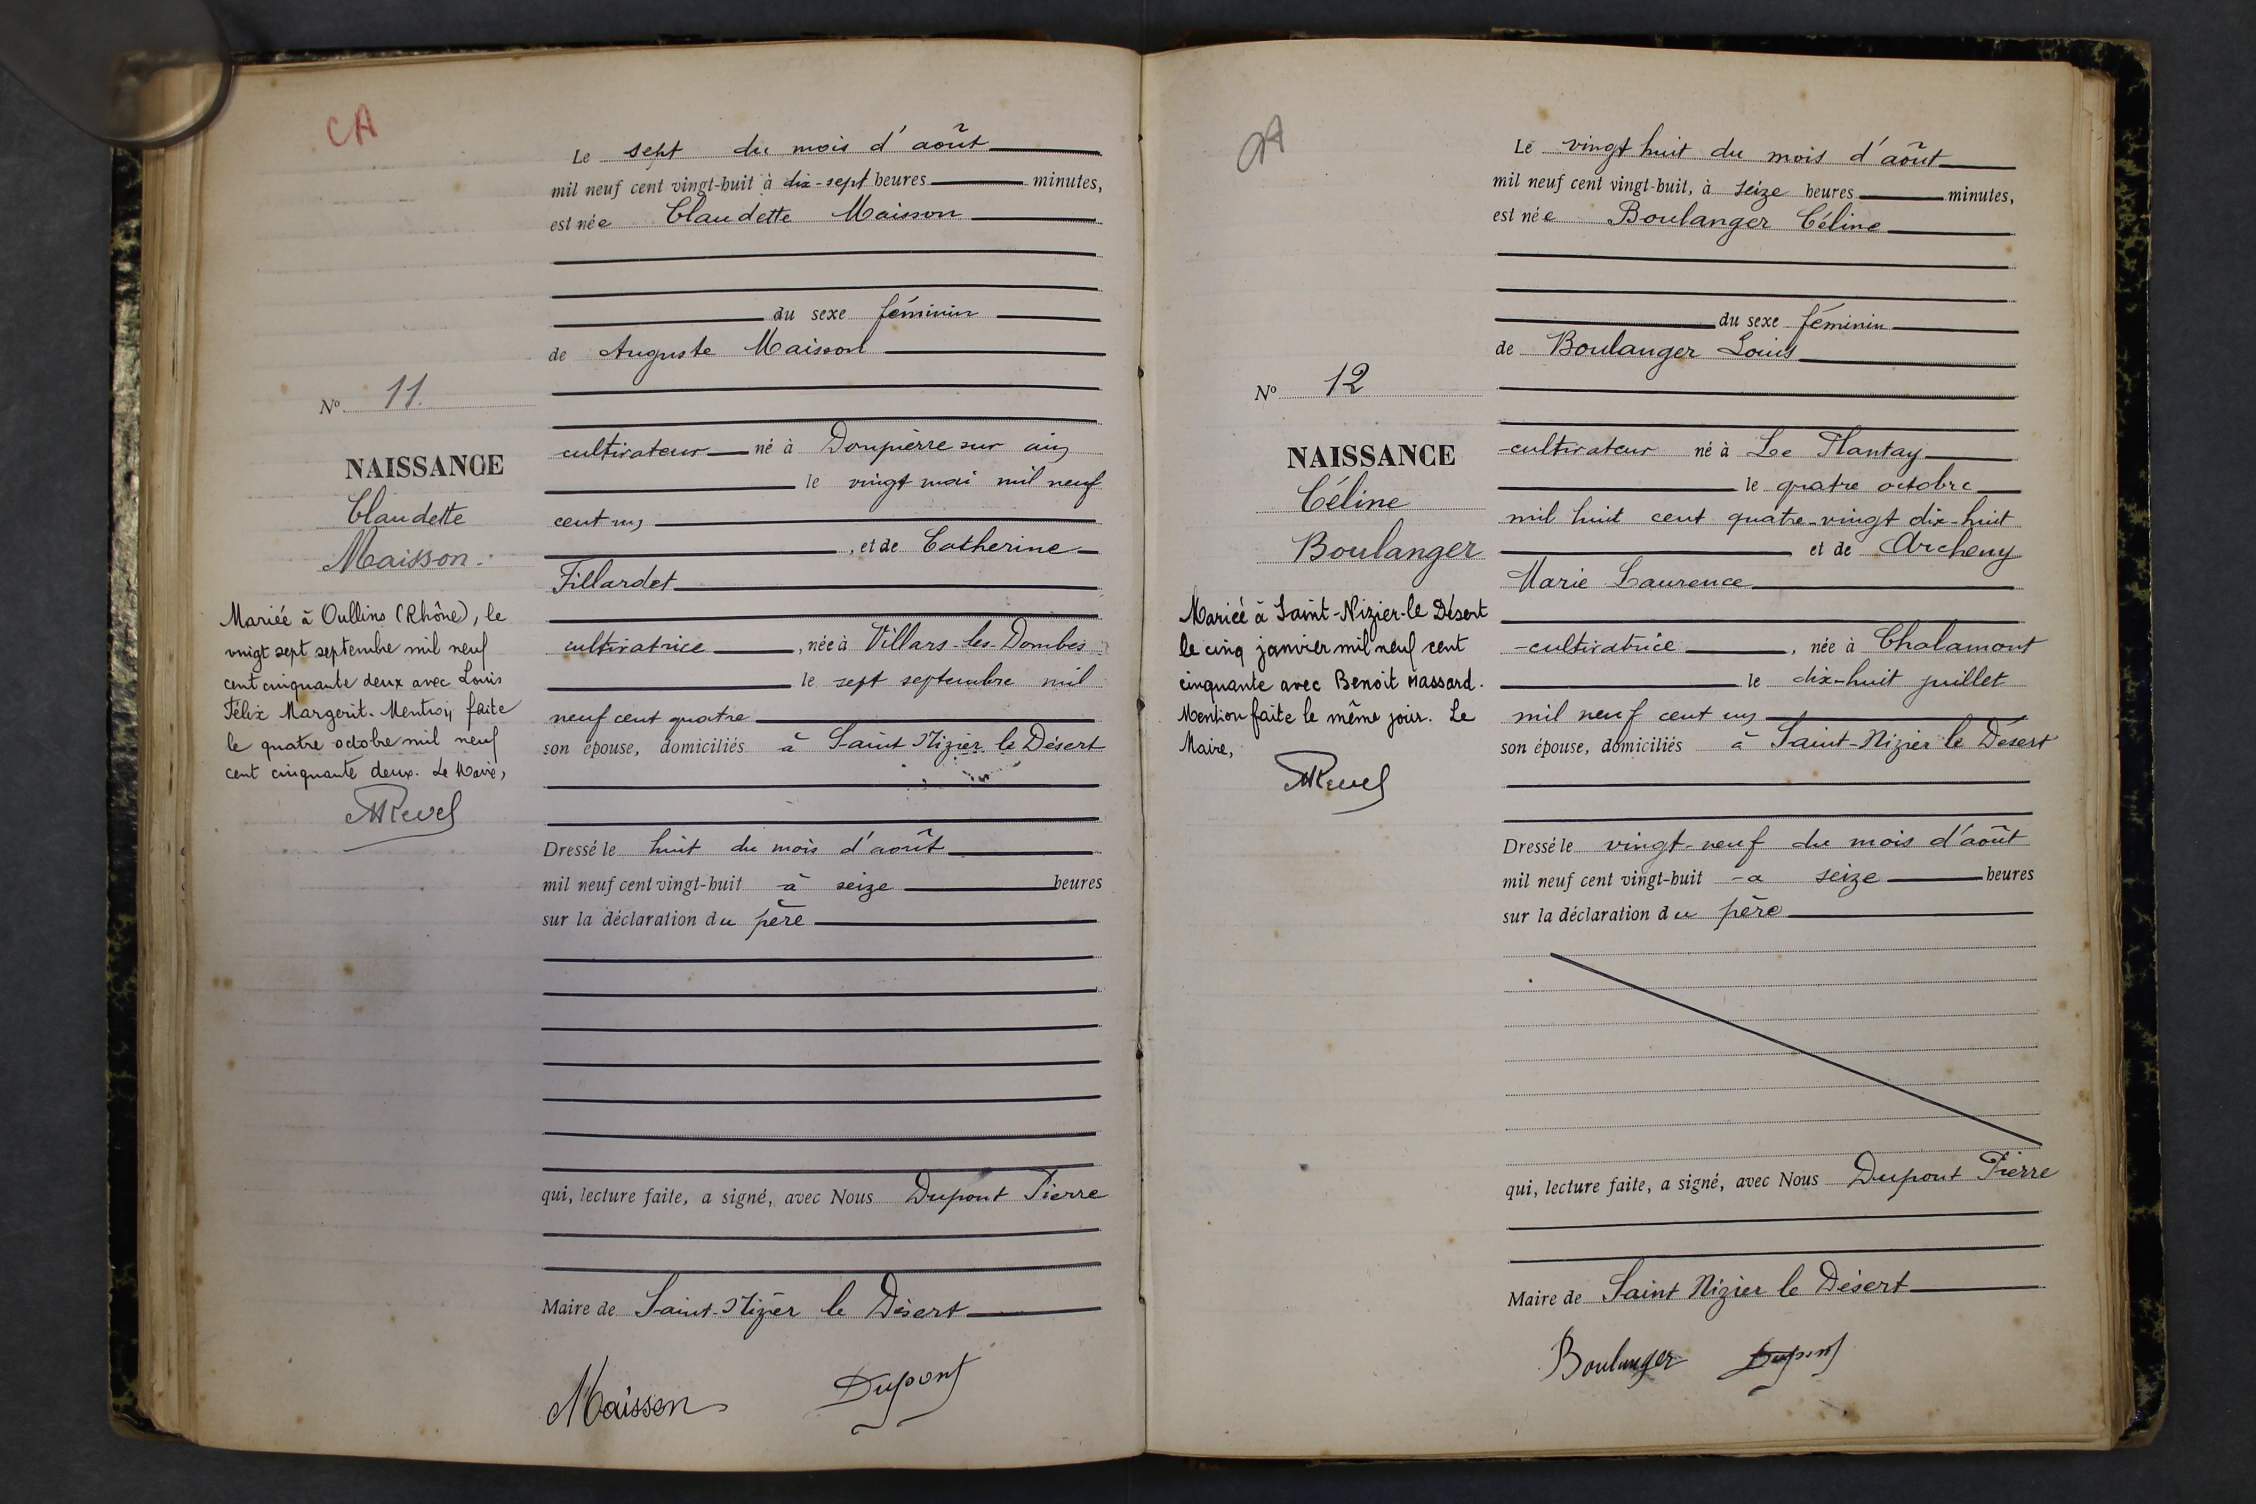 CA
Le sept du mois d'août
mil neuf cent vingt-huit à dix-sept heures minutes,
est née Claudette Maisson
du sexe féminin
de Auguste Maisson
cultivateur né à Dompierre sur ain
le vingt mai mil neuf
cent un
, et de Catherine
Fillardet
cultivatrice , née à Villars-les-Dombes
le sept septembre mil
neuf cent quatre
son épouse, domiciliés à Saint Nizier le Désert
Dressé le huit du mois d'août
mil neuf cent vingt-huit à seize heures
sur la déclaration du père
qui, lecture faite, a signé, avec Nous Dupont Pierre
Maire de Saint-Nizier le Désert
Maisson Dupont
No 11.
NAISSANCE
Claudette
Maisson.
Mariée à Oullins (Rhône), le
vingt sept septembre mil neuf
cent cinquante deux avec Louis
Félix Margerit. Mention faite
le quatre octobre mil neuf
cent cinquante deux. Le Maire,
MRevel
CA
Le vingt huit du mois d'août
mil neuf cent vingt-huit, à seize heures minutes,
est née Boulanger Céline
du sexe féminin
de Boulanger Louis
cultivateur né à Le Plantay
le quatre octobre
mil huit cent quatre-vingt dix-huit
et de Archeny
Marie Laurence
cultivatrice , née à Chalamont
le dix-huit juillet
mil neuf cent un
son épouse, domiciliés à Saint-Nizier le Désert
Dressé le vingt-neuf du mois d'août
mil neuf cent vingt-huit à seize heures
sur la déclaration du père
qui, lecture faite, a signé, avec Nous Dupont Pierre
Maire de Saint Nizier le Désert
Boulanger Dupont
No 12
NAISSANCE
Céline
Boulanger
Mariée à Saint-Nizier-le Désert
le cinq janvier mil neuf cent
cinquante avec Benoit Massard.
Mention faite le même jour. Le
Maire,
MRevel